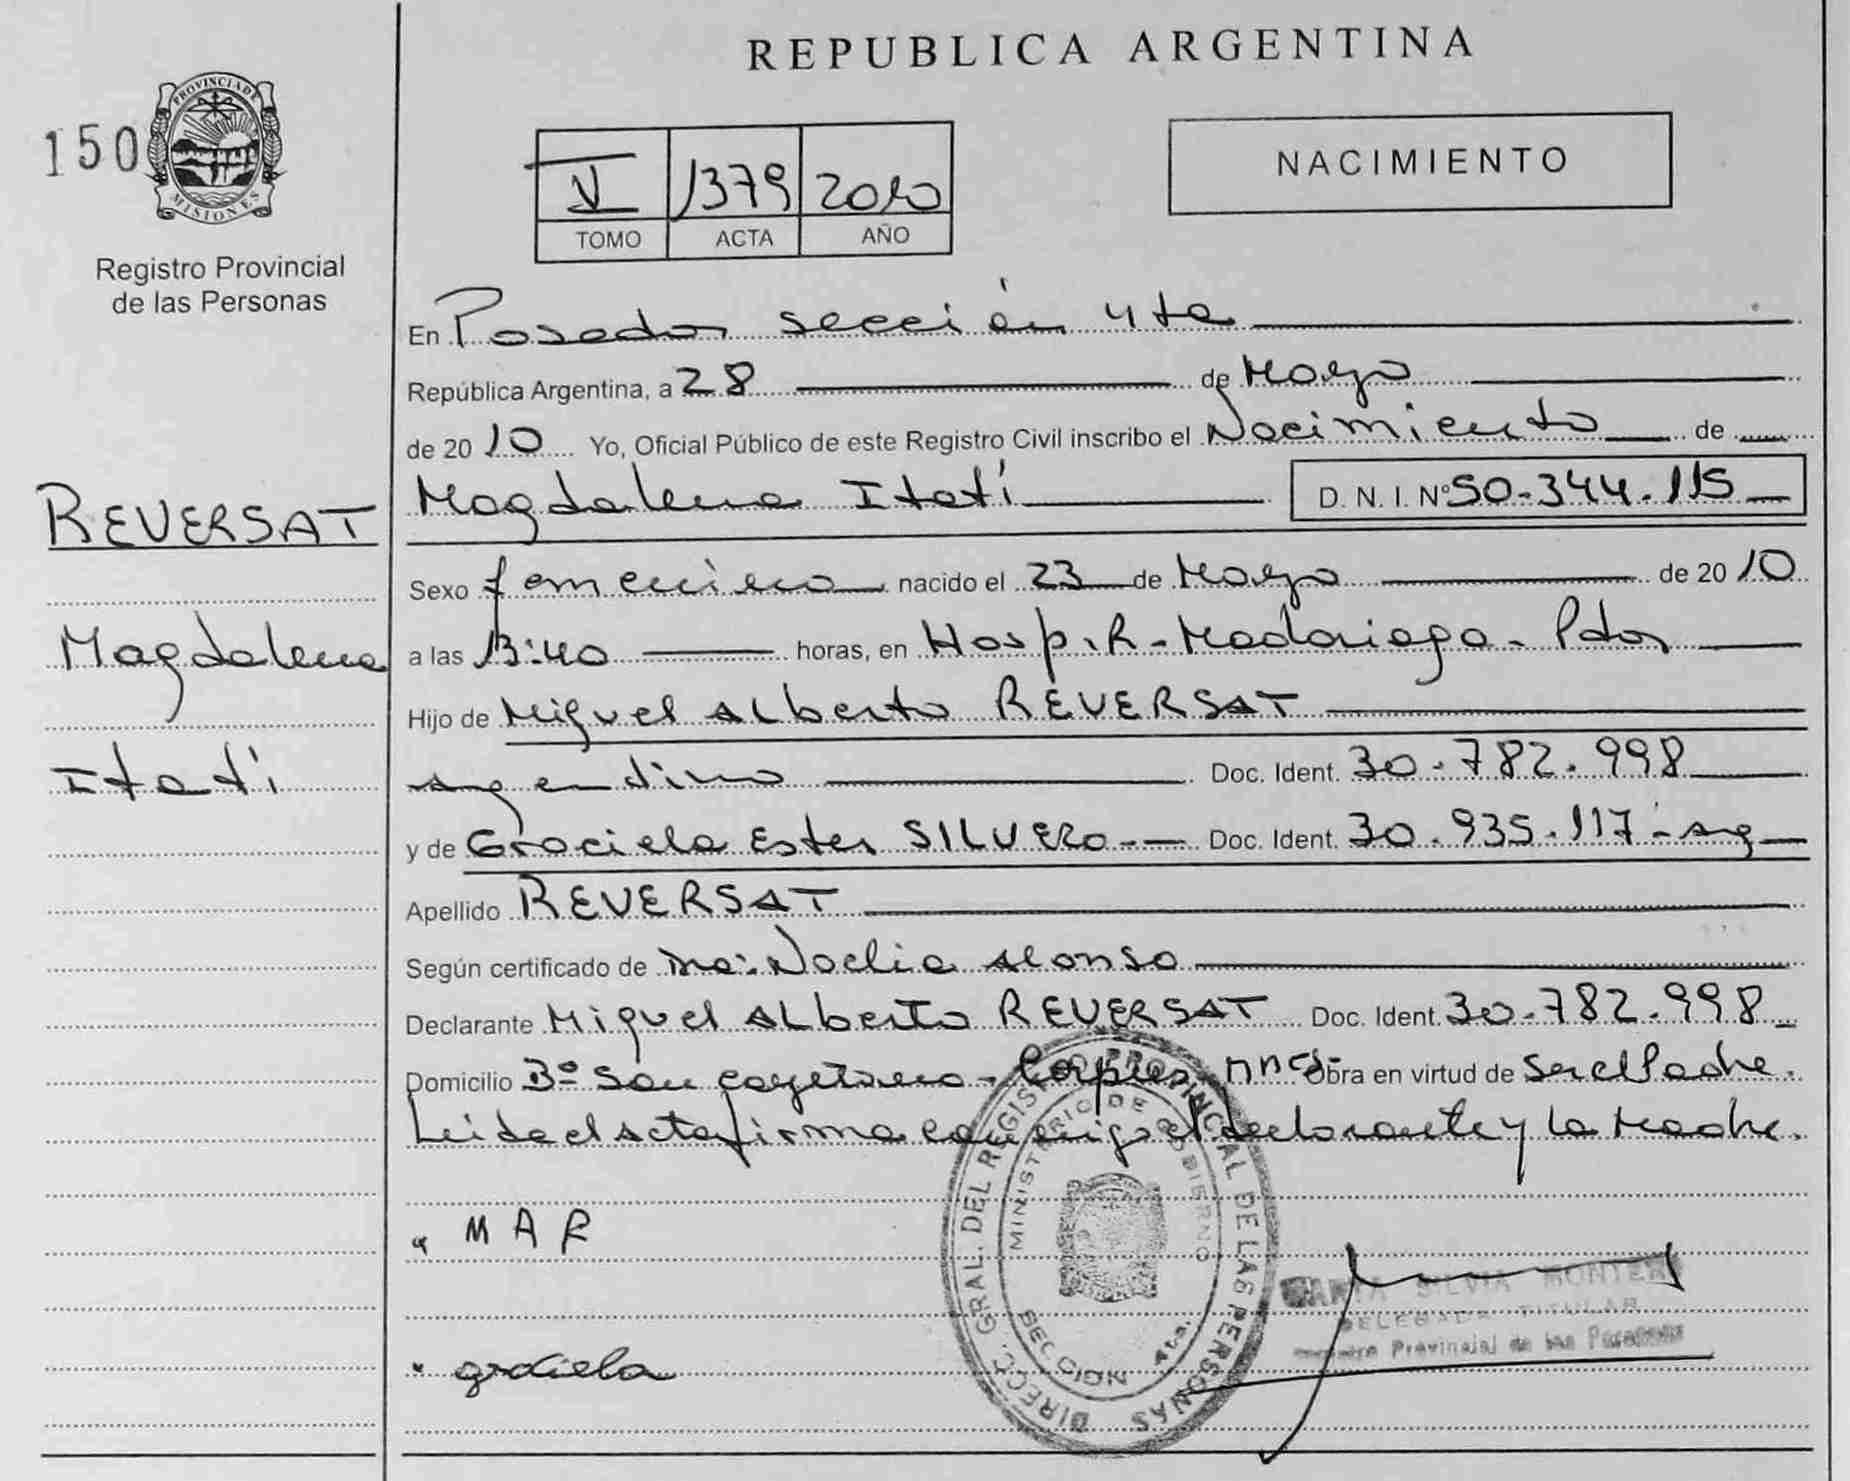 REPUBLICA ARGENTINA
PROVINCIA DE MISIONES
150
Registro Provincial
de las Personas
NACIMIENTO
V 1379 2010
TOMO ACTA AÑO
En Posadas sección 4ta
República Argentina, a 28 de Mayo
de 2010 Yo, Oficial Público de este Registro Civil inscribo el Nacimiento de
Magdalena Itatí D. N. I. Nº 50.344.115
REVERSAT
Magdalena
Itatí
Sexo femenino nacido el 23 de Mayo de 2010
a las 13:40 horas, en Hosp. R. Madariaga - Pdas
Hijo de Miguel Alberto REVERSAT
argentino Doc. Ident. 30.782.998
y de Graciela Ester SILVERO Doc. Ident. 30.935.117 - arg
Apellido REVERSAT
Según certificado de Noelia Alonso
Declarante Miguel Alberto REVERSAT Doc. Ident. 30.782.998
Domicilio Bº San Cayetano - Corpus Mnes Obra en virtud de ser el Padre.
Leida el acta firma conmigo el declarante y la Madre.
MAR
graciela
DIRECC. GRAL. DEL REGISTRO PROVINCIAL DE LAS PERSONAS
MINISTERIO DE GOBIERNO
SECCION 4ta.
SILVIA
DELEGADA TITULAR
Provincial de las Personas